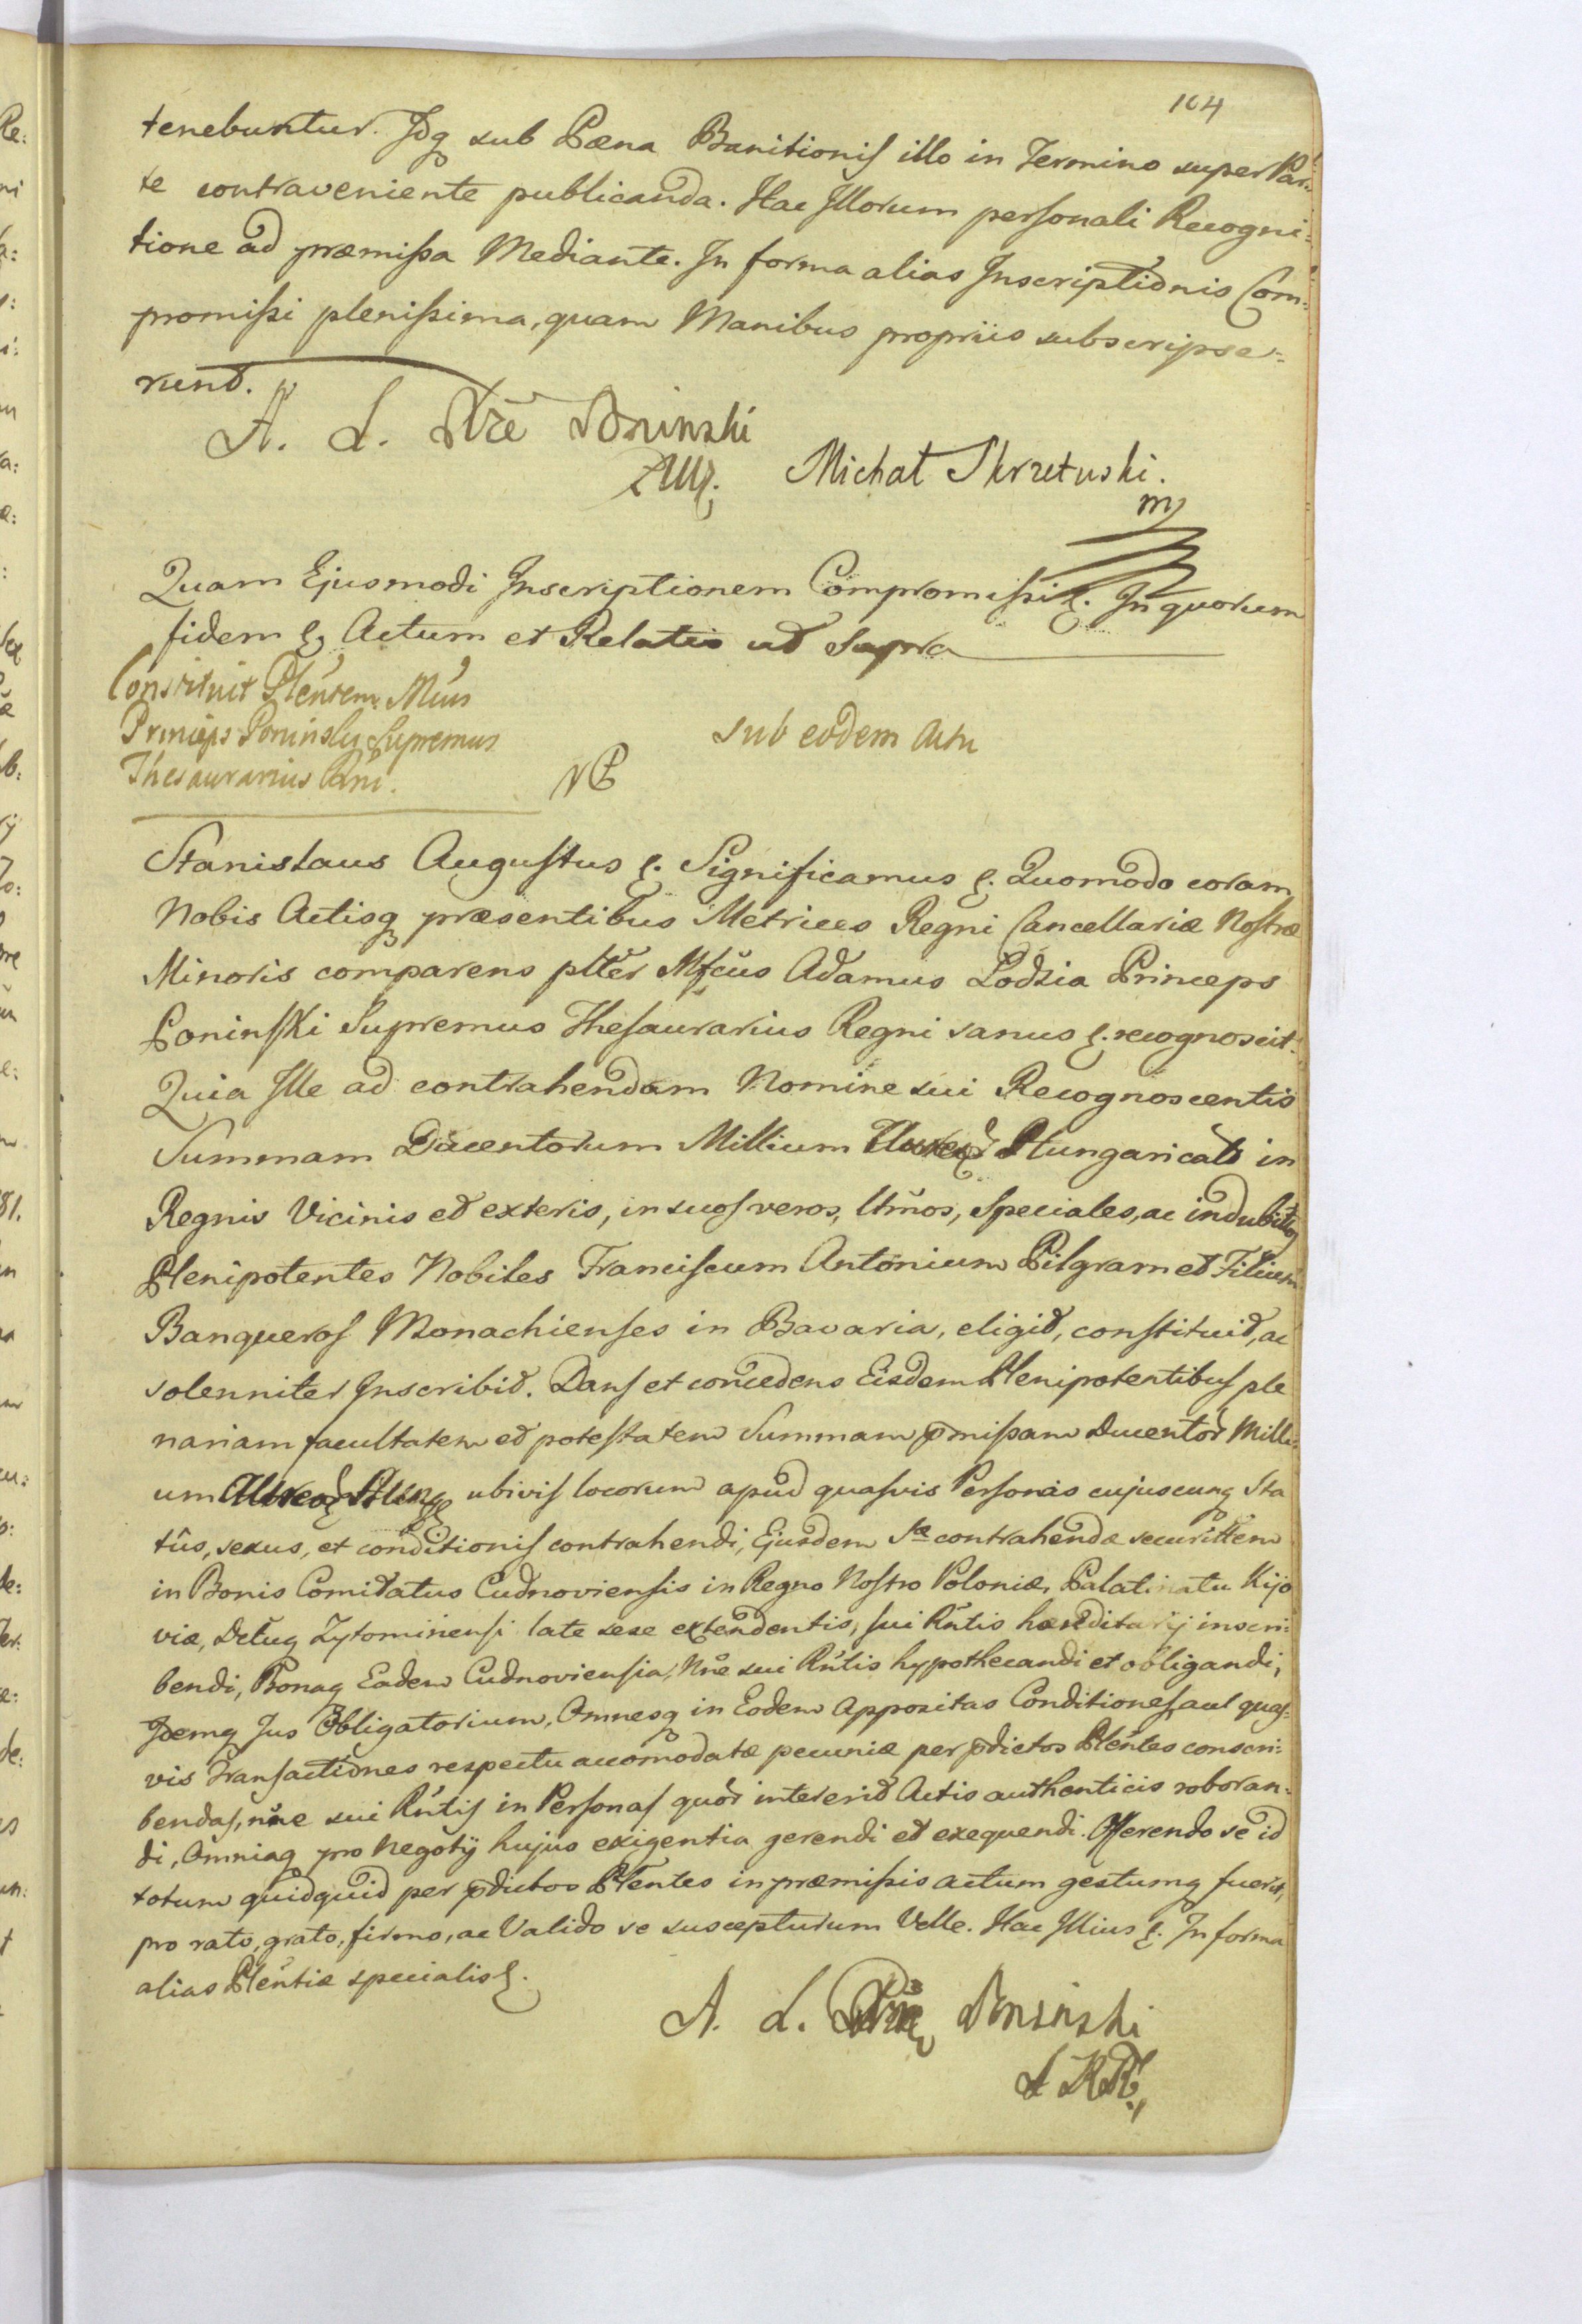 104
tenebuntur. Idq sub Pæna Banitionis illo in Termino super Par:
te contraveniente publicanda. Hac Illorum personali Recogni:
tione ad præmissa Mediante. In forma alias Inscriptionis Com:
promissi plenissima, quam Manibus propriis subscripse:
runt.
A. L. Poninski
Michał Skrzetuski.
Quam Ejusmodi Inscriptionem Compromissi &. In quorum
fidem & Actum et Relatio ut Supra
Constituit Plentem Mcus
Princeps Poninsky Supremus
Thesaurarius Rni.
sub eodem Actu
Stanislaus Augustus &. Significamus &. Quomodo coram
Nobis Actisq præsentibus Metrices Regni Cancellariæ Nostræ
Minoris comparens plter Mfcus Adamus Lodzia Princeps
Poninski Supremus Thesaurarius Regni sanus &. recognoscit.
Quia Ille ad contrahendam Nomine sui Recognoscentis
Summam Ducentorum Millium Hungarical in
Regnis Vicinis et exteris, in suos veros, ltmos, speciales, ac indubitos
Plenipotentes Nobiles Franciscum Antonium Pilgram et Filium
Banqueros Monachienses in Bavaria, eligit, constituit, ac
solenniter Inscribit. Dans et concedens Eisdem Plenipotentibus ple
nariam facultatem et potestatem Summam pmissam Ducentor Milli:
um ubivis locorum apud quasvis Personas cujuscunq Sta
tûs, sexus, et conditionis contrahendi, Ejusdem Sæ contrahendæ securittem
in Bonis Comitatus Cudnoviensis in Regno Nostro Poloniæ, Palatinatu Kijo
viæ, Dctuq Zytomiriensi late sese extendentis, sui Rntis hæreditarij inscri:
bendi, Bonaq Eadem Cudnoviensia, Nne sui Rntis hypothecandi et obligandi,
Idemq Jus Obligatorium, Omnesq in Eodem Appositas Conditiones, aut quas:
vis Transactiones respectu accomodatæ pecuniæ per pdictos Plentes conscri:
bendas, nne sui Rntis in Personas quor intererit Actis authenticis roboran:
di, Omniaq pro Negotij hujus exigentia gerendi et exequendi. Offerendo se id
totum quidquid per pdictos Plentes in præmissis actum gestumq fuerit,
pro rato, grato, firmo, ac Valido se suscepturum Velle. Hac Illius &. In forma
alias Plentiæ specialis &.
A. L. Poninski